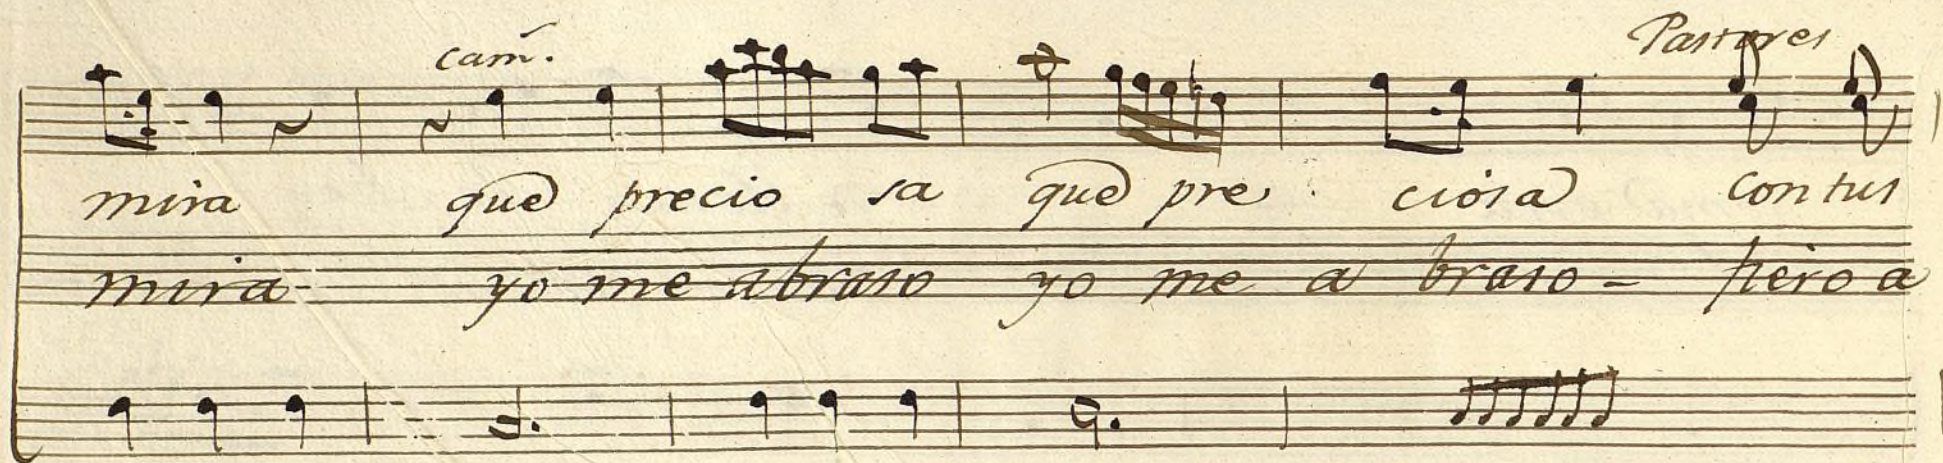 cam̃. Pastores
mira que precio sa que pre ciosa con tus
mira yo me abraso yo me a braso - pero a